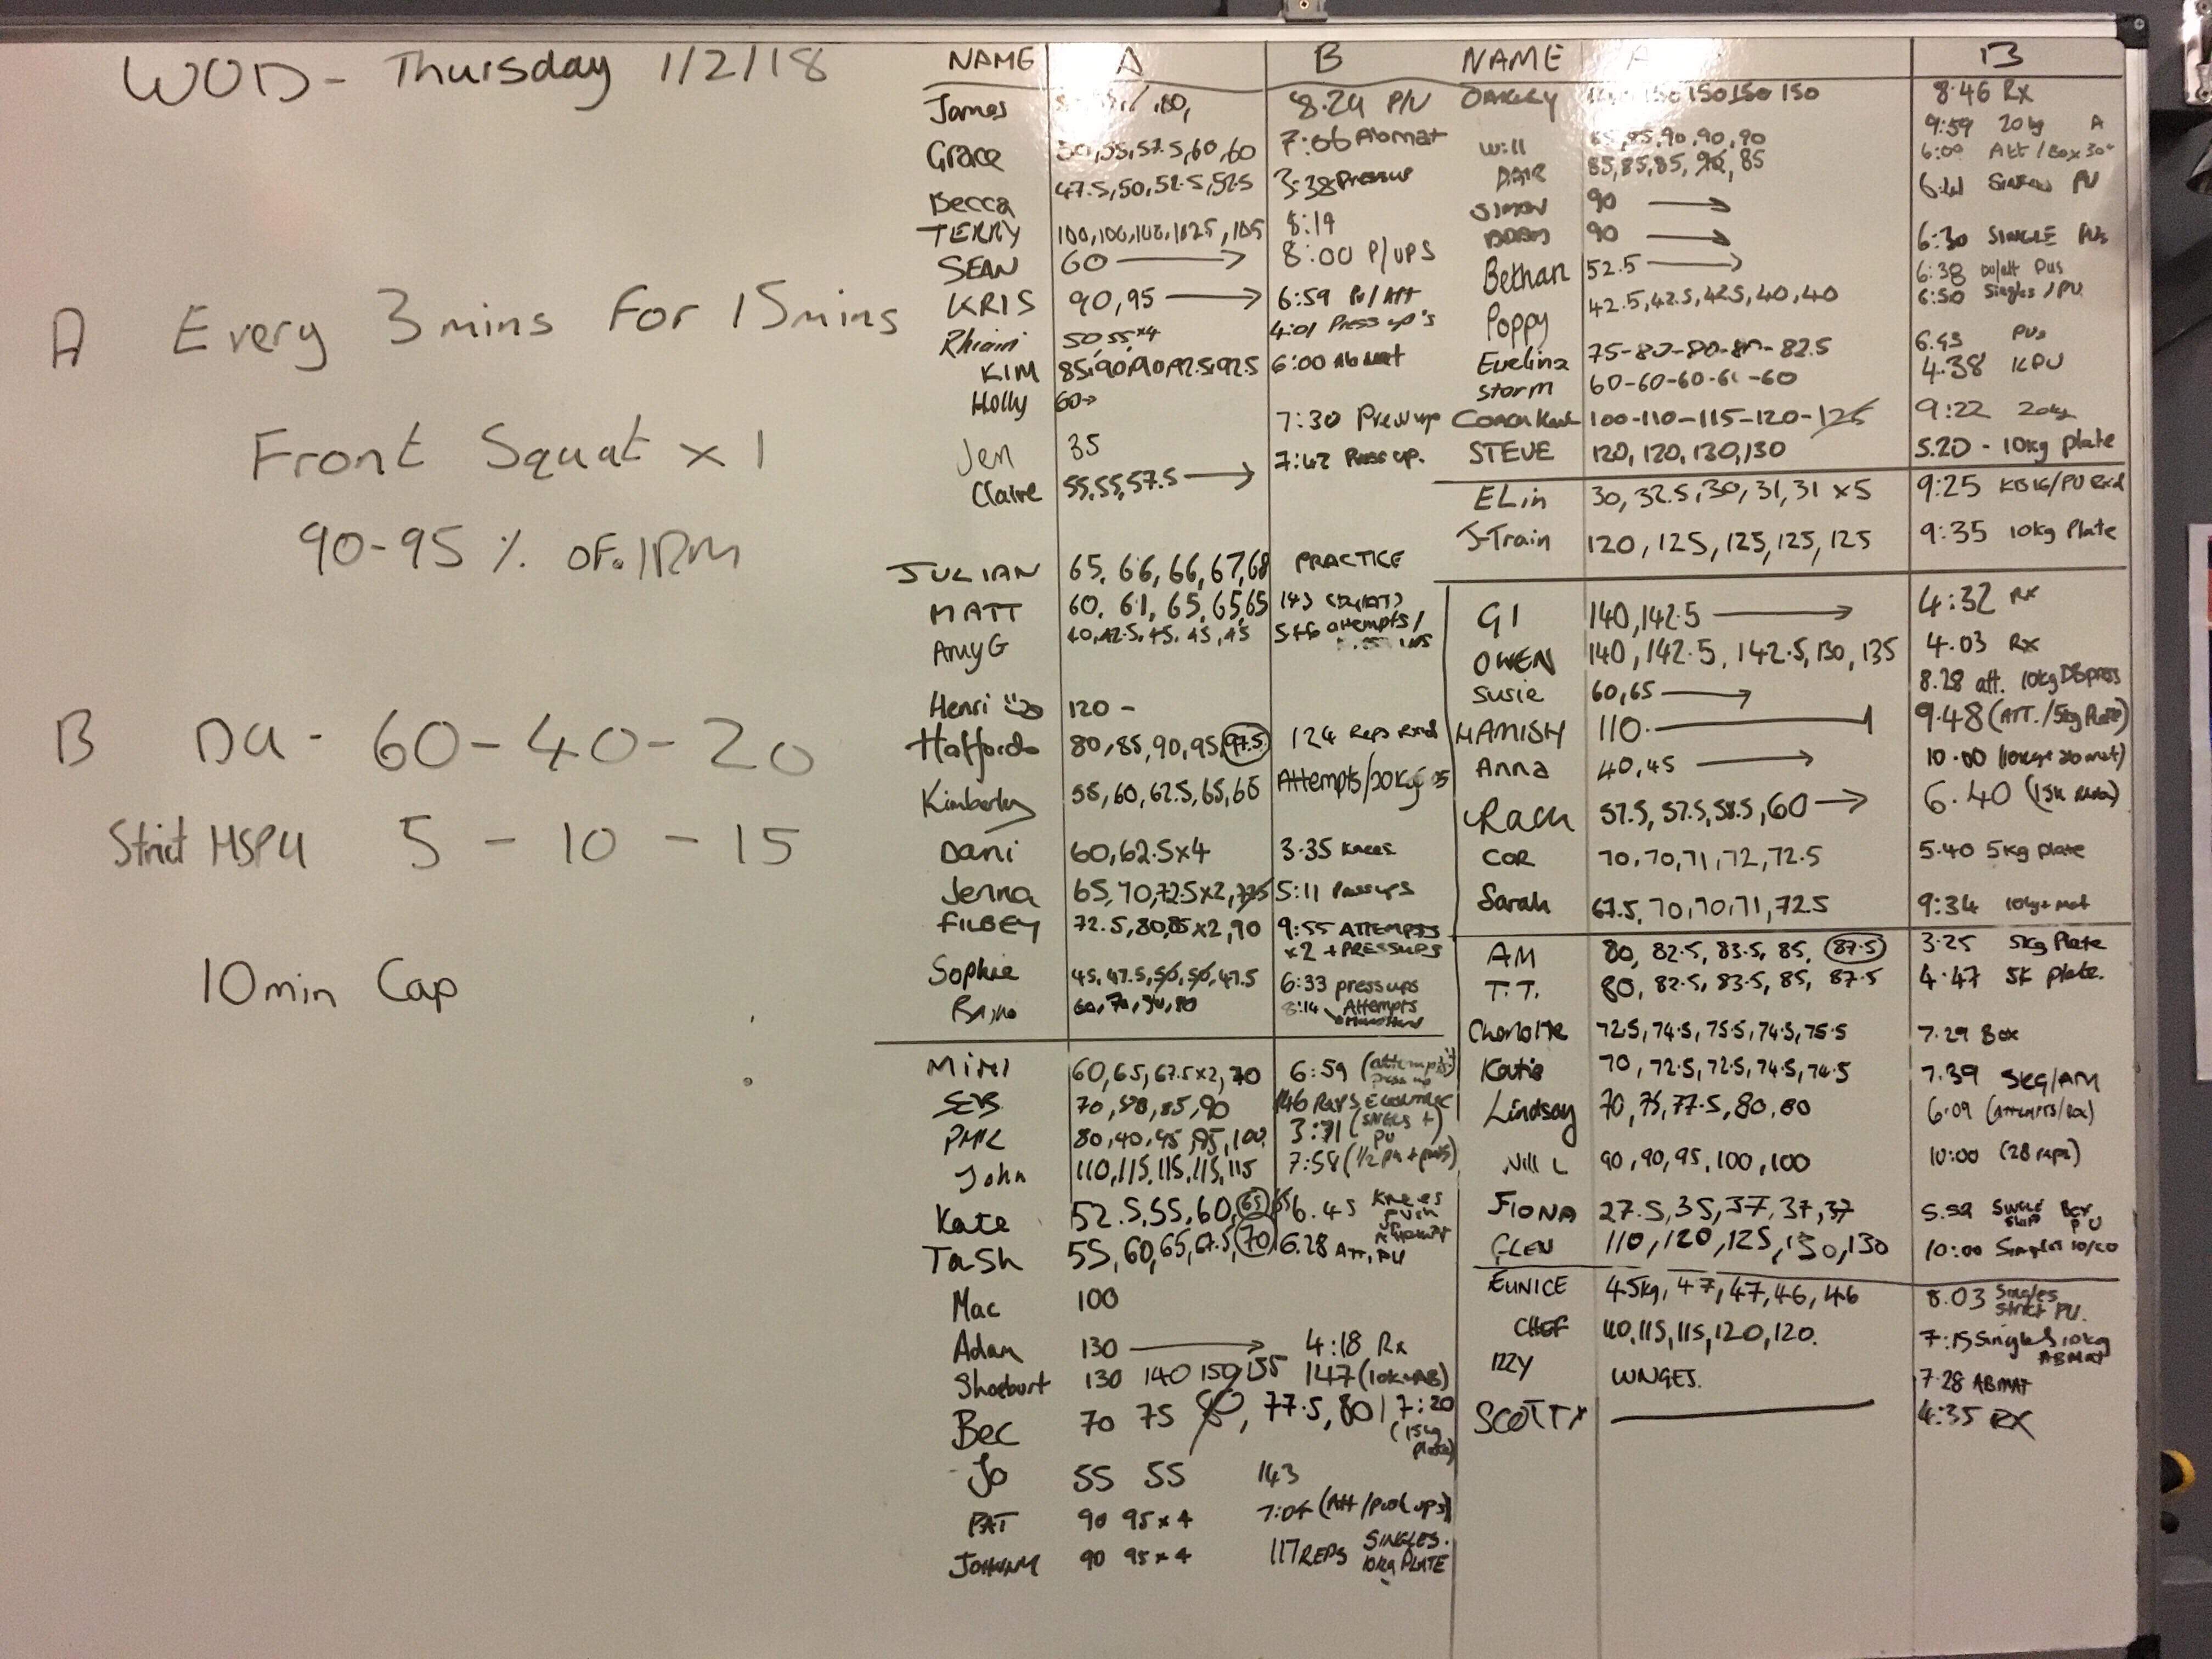 WOD - Thursday 1/2/18
A Every 3 mins For 15 mins
Front Squat x 1
90-95 % of 1RM
B DU - 60 - 40 - 20
Strict HSPU 5 - 10 - 15
10 min Cap
NAME A B
James 80, 8.24 P/U
Grace 50, 55, 57.5, 60, 60 7:06 Abmat
Becca 47.5, 50, 52.5, 52.5 3:38 Pressup
TERRY 100, 100, 100, 102.5, 105 8:19
SEAN 60 → 8:00 P/UPS
KRIS 90, 95 → 6:59 Pu/Att
50, 55 x4 4:01 Press up's
KIM 85, 90, 90, 92.5, 92.5 6:00 Abmat
Holly 60→
Jen 35 7:30 Pressup
Claire 55, 55, 57.5 → 7:42 Pressup.
JULIAN 65, 66, 66, 67, 68 PRACTICE
MATT 60, 61, 65, 65, 65 143
Amy G 40, 42.5, 45, 45, 45 attempts/
Henri 120 -
Halfords 80, 85, 90, 95, 97.5 124 Reps Rxd
Kimberley 55, 60, 62.5, 65, 65 Attempts/20kg
Dani 60, 62.5x4 3.35 knees
Jenna 65, 70, 72.5x2, 77.5 5:11 Pressups
FILBEY 72.5, 80, 85x2, 90 9:55 ATTEMPTS
x2 + PRESSUPS
Sophie 45, 47.5, 50, 50, 47.5 6:33 pressups
60, 70, 80 8:14 Attempts
MIMI 60, 65, 67.5x2, 70 6:59 (attempts
press up
SEB 70, 80, 85, 90 146 Reps
PHIL 80, 90, 95, 95, 100 3:71 (SINGLES +
PU)
John 110, 115, 115, 115, 115 7:58 (1/2 pu +
Kate 52.5, 55, 60, 65 6.45 Knees
push
Tash 55, 60, 65, 67.5, 70 6.28 ATT, PU
Mac 100
Adam 130 → 4:18 Rx
130 140 150 155 147 (10k+AB)
Bec 70 75 80, 77.5, 80 7:20
(15kg
plate)
Jo 55 55 143
PAT 90 95x4 7:04 (Att/push ups)
JOHNNY 90 95x4 117 REPS SINGLES.
10kg PLATE
NAME A B
OAKLEY 150 150 150 150 8:46 Rx
9:59 20kg A
Will 85, 85, 90, 90, 90 6:00 Att/Box 30"
85, 85, 85, 90, 85 PU
SIMON 90 →
90 → 6:30 SINGLE PUs
Bethan 52.5 → 6:38 DU/att Pus
Poppy 42.5, 42.5, 42.5, 40, 40 6:50 Singles/PU
Evelina 75-80-80-80-82.5 6.43 PUs
Storm 60-60-60-60-60 4.38 KPU
Coach 100-110-115-120-125 9:22 20kg
STEVE 120, 120, 130, 130 5.20 - 10kg plate
ELin 30, 32.5, 30, 31, 31 x5 9:25 KB16/PU Rxd
J-Train 120, 125, 125, 125, 125 9:35 10kg Plate
GI 140, 142.5 → 4:32 Rx
OWEN 140, 142.5, 142.5, 130, 135 4.03 Rx
Susie 60, 65 → 8.28 att. 10kg DB press
HAMISH 110 9.48 (ATT./5kg Plate)
Anna 40, 45 → 10.00 (10kg+abmat)
Rach 57.5, 57.5, 58.5, 60 → 6.40
COR 70, 70, 71, 72, 72.5 5.40 5kg plate
Sarah 67.5, 70, 70, 71, 72.5 9:34 10kg+mat
AM 80, 82.5, 83.5, 85, 87.5 3.25 5kg Plate
T.T. 80, 82.5, 83.5, 85, 87.5 4.47 5k plate.
Charlotte 72.5, 74.5, 75.5, 74.5, 75.5 7.29 Box
Katie 70, 72.5, 72.5, 74.5, 74.5 7.39 5KG/AM
Lindsay 70, 75, 77.5, 80, 80 6.09 (Attempts/Box)
Will L 90, 90, 95, 100, 100 10:00 (28 reps)
FIONA 27.5, 35, 37, 37, 37 5.59 SINGLE Box
SKIP PU
GLEN 110, 120, 125, 130, 130 10:00 Singles
EUNICE 45kg, 47, 47, 46, 46 8.03 Singles
Strict PU.
CHEF 110, 115, 115, 120, 120. 7:15 Singles 10kg
ABMAT
IZZY LUNGES. 7.28 ABMAT
SCOTTY 4:35 RX